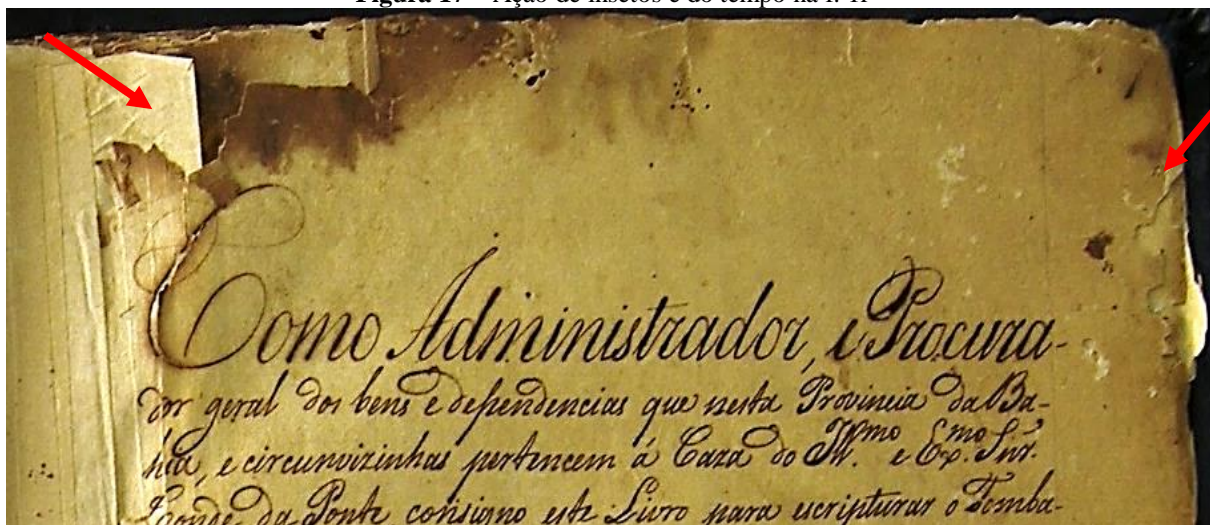 Figura 17 – Ação de insetos e do tempo na f. 1r
Como Administrador, e Procura-
dor geral dos bens e dependencias que nesta Provincia da Ba-
hia, e circunvizinhas pertencem á Caza do Illmo. e Exmo. Snr.
Conde da Ponte consigno este Livro para escripturar o Tomba-